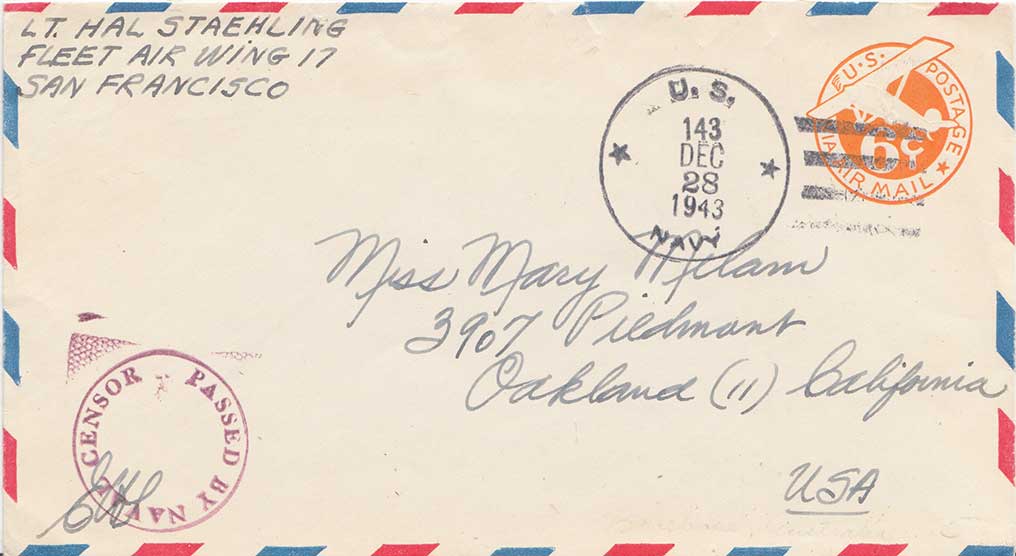 LT. HAL STAEHLING
FLEET AIR WING 17
SAN FRANCISCO
U.S. POSTAGE
6¢
VIA AIR MAIL
U.S.
143
DEC
28
1943
NAVY
Miss Mary Milam
3907 Piedmont
Oakland (11) California
USA
PASSED BY NAVAL CENSOR